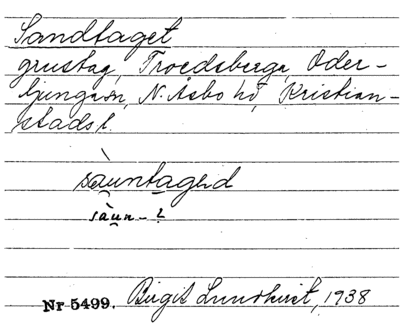 Sandtaget
grustag, Troedsberga, Oder-
ljunga sn, N. Åsbo hd, Kristian-
stads l.
sàuntagəd
sàun- ?
Nr 5499. Birgit Lundkvist, 1938